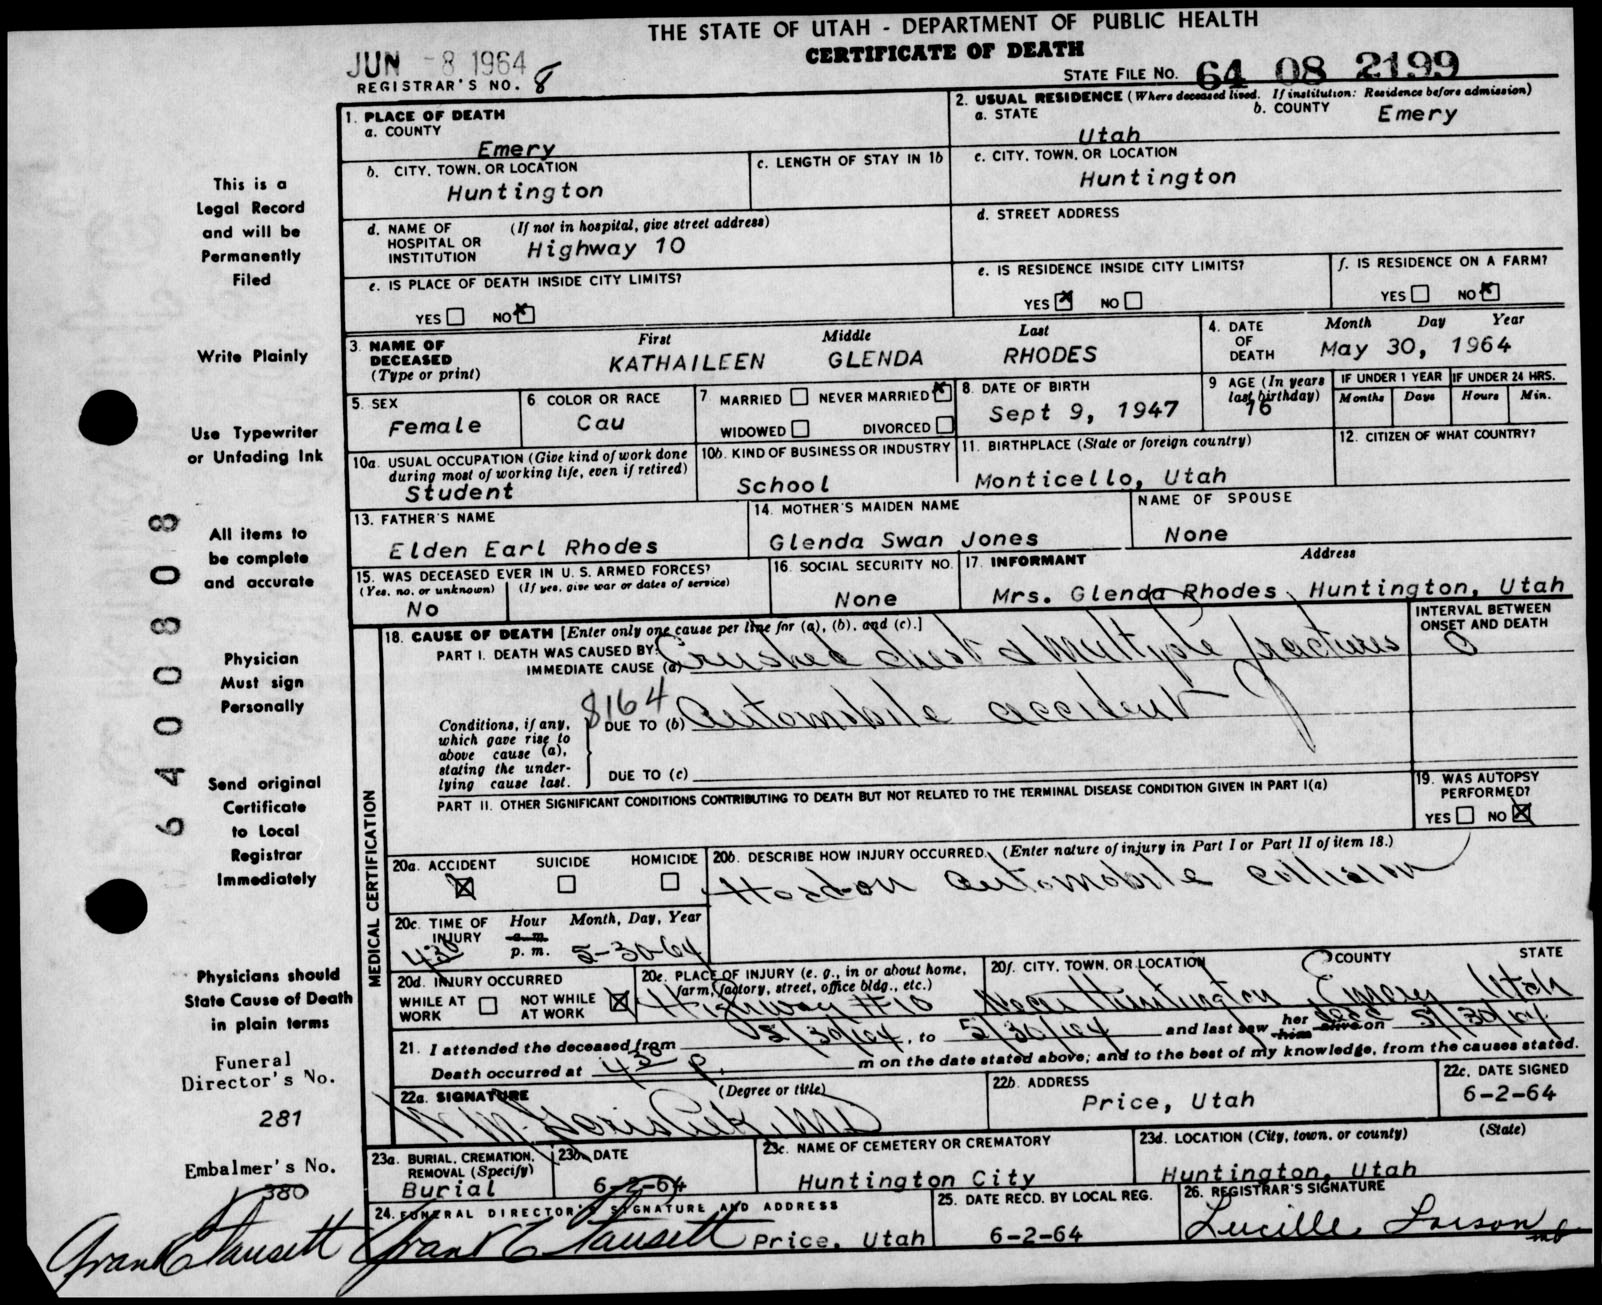 THE STATE OF UTAH - DEPARTMENT OF PUBLIC HEALTH
CERTIFICATE OF DEATH
JUN -8 1964
REGISTRAR'S NO. 8
STATE FILE NO. 64 08 2199
1. PLACE OF DEATH
a. COUNTY
Emery
2. USUAL RESIDENCE (Where deceased lived. If institution: Residence before admission)
a. STATE
Utah
b. COUNTY
Emery
b. CITY, TOWN, OR LOCATION
Huntington
c. LENGTH OF STAY IN 1b
c. CITY, TOWN, OR LOCATION
Huntington
d. NAME OF HOSPITAL OR INSTITUTION
(If not in hospital, give street address)
Highway 10
d. STREET ADDRESS
e. IS PLACE OF DEATH INSIDE CITY LIMITS?
YES NO x
e. IS RESIDENCE INSIDE CITY LIMITS?
YES x NO
f. IS RESIDENCE ON A FARM?
YES NO x
3. NAME OF DECEASED (Type or print)
First Middle Last
KATHAILEEN GLENDA RHODES
4. DATE OF DEATH
Month Day Year
May 30, 1964
5. SEX
Female
6 COLOR OR RACE
Cau
7. MARRIED NEVER MARRIED x
WIDOWED DIVORCED
8. DATE OF BIRTH
Sept 9, 1947
9 AGE (In years last birthday)
16
IF UNDER 1 YEAR
Months Days
IF UNDER 24 HRS.
Hours Min.
10a. USUAL OCCUPATION (Give kind of work done during most of working life, even if retired)
Student
10b. KIND OF BUSINESS OR INDUSTRY
School
11. BIRTHPLACE (State or foreign country)
Monticello, Utah
12. CITIZEN OF WHAT COUNTRY?
13. FATHER'S NAME
Elden Earl Rhodes
14. MOTHER'S MAIDEN NAME
Glenda Swan Jones
NAME OF SPOUSE
None
15. WAS DECEASED EVER IN U. S. ARMED FORCES?
(Yes, no, or unknown) (If yes, give war or dates of service)
No
16. SOCIAL SECURITY NO.
None
17. INFORMANT Address
Mrs. Glenda Rhodes Huntington, Utah
MEDICAL CERTIFICATION
18. CAUSE OF DEATH [Enter only one cause per line for (a), (b), and (c).]
INTERVAL BETWEEN ONSET AND DEATH
PART I. DEATH WAS CAUSED BY:
IMMEDIATE CAUSE (a) Crushed chest & Multiple fractures 0
8164
Conditions, if any, which gave rise to above cause (a), stating the underlying cause last.
DUE TO (b) Automobile accident
DUE TO (c)
PART II. OTHER SIGNIFICANT CONDITIONS CONTRIBUTING TO DEATH BUT NOT RELATED TO THE TERMINAL DISEASE CONDITION GIVEN IN PART I(a)
19. WAS AUTOPSY PERFORMED?
YES NO X
20a. ACCIDENT SUICIDE HOMICIDE
X
20b. DESCRIBE HOW INJURY OCCURRED. (Enter nature of injury in Part I or Part II of item 18.)
Head-on automobile collision
20c. TIME OF INJURY
Hour Month, Day, Year
430 a.m. p.m. 5-30-64
20d. INJURY OCCURRED
WHILE AT WORK NOT WHILE AT WORK X
20e. PLACE OF INJURY (e. g., in or about home, farm, factory, street, office bldg., etc.)
Highway #10
20f. CITY, TOWN, OR LOCATION COUNTY STATE
Near Huntington Emery Utah
21. I attended the deceased from 5/30/64, to 5/30/64 and last saw her him dead alive on 5/30/64
Death occurred at 430 p. m on the date stated above; and to the best of my knowledge, from the causes stated.
22a. SIGNATURE (Degree or title)
22b. ADDRESS
Price, Utah
22c. DATE SIGNED
6-2-64
23a. BURIAL, CREMATION, REMOVAL (Specify)
Burial
23b. DATE
6-2-64
23c. NAME OF CEMETERY OR CREMATORY
Huntington City
23d. LOCATION (City, town, or county) (State)
Huntington, Utah
24. FUNERAL DIRECTOR'S SIGNATURE AND ADDRESS
Price, Utah
25. DATE RECD. BY LOCAL REG.
6-2-64
26. REGISTRAR'S SIGNATURE
Lucille Larson
This is a
Legal Record
and will be
Permanently
Filed
Write Plainly
Use Typewriter
or Unfading Ink
All items to
be complete
and accurate
Physician
Must sign
Personally
Send original
Certificate
to Local
Registrar
Immediately
Physicians should
State Cause of Death
in plain terms
Funeral
Director's No.
281
Embalmer's No.
380
6400808